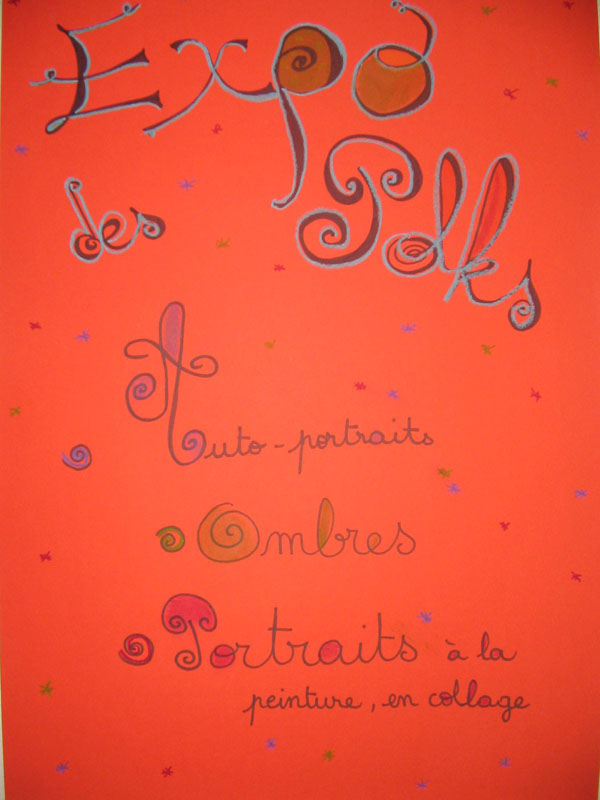 Expo
des Polks
Auto-portraits
Ombres
Portraits à la
peinture, en collage